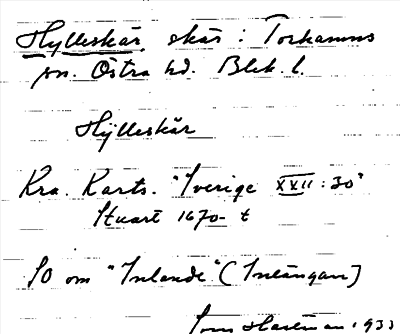 Hylleskär, skär i Torhamns
sn. Östra hd. Blek. l.
Hÿlleskär
Kra. Karts. "Sverige XVII:30"
Stuart 1670-t
SO om "Inlande" (Inlängan)
1933